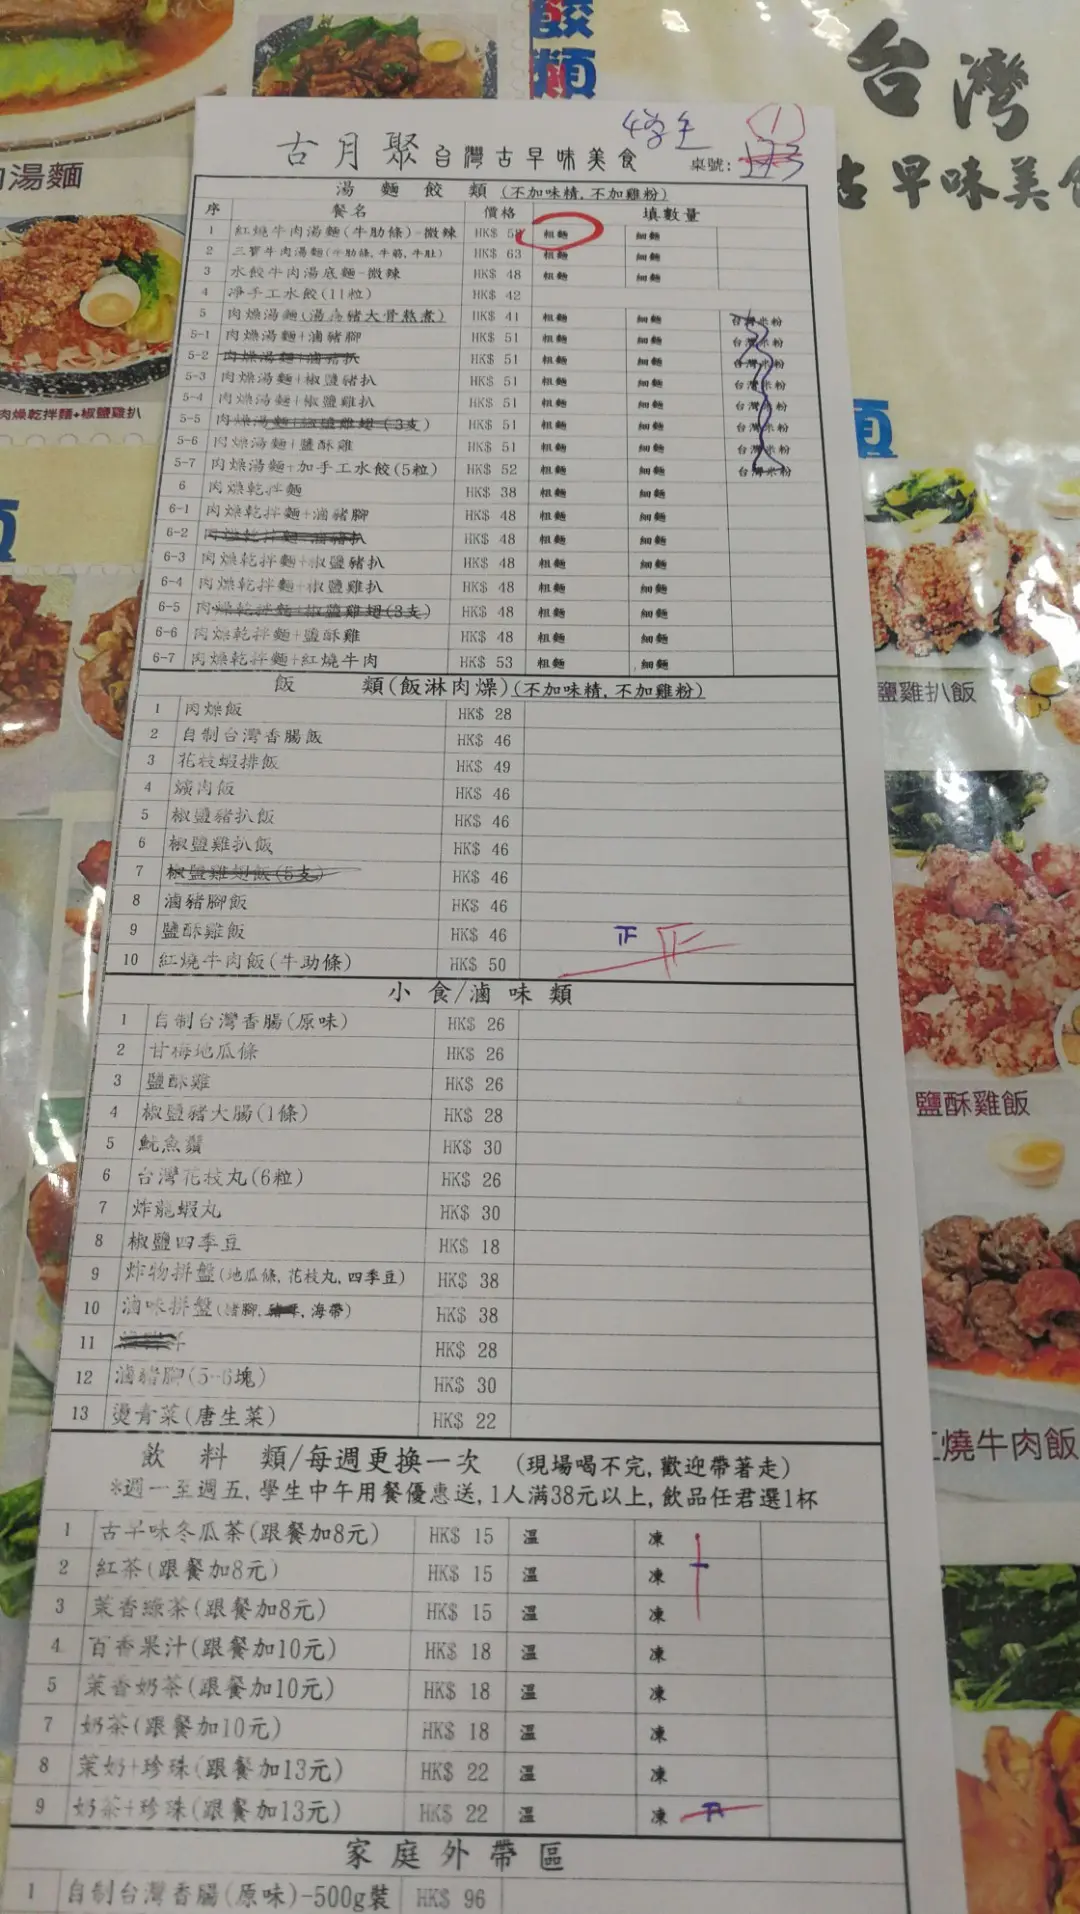 餃類
台灣
古早味美食
湯麵
肉燥乾拌麵+椒鹽雞扒
4學生
古月聚台灣古早味美食 桌號:
湯麵餃類(不加味精,不加雞粉)
序 餐名 價格 填數量
1 紅燒牛肉湯麵(牛肋條)-微辣 HK$ 58 粗麵 細麵
2 三寶牛肉湯麵(牛肋條,牛筋,牛肚) HK$ 63 粗麵 細麵
3 水餃牛肉湯底麵-微辣 HK$ 48 粗麵 細麵
4 淨手工水餃(11粒) HK$ 42
5 肉燥湯麵(湯為豬大骨熬煮) HK$ 41 粗麵 細麵 台灣米粉
5-1 肉燥湯麵+滷豬腳 HK$ 51 粗麵 細麵 台灣米粉
5-2 肉燥湯麵+滷豬扒 HK$ 51 粗麵 細麵 台灣米粉
5-3 肉燥湯麵+椒鹽豬扒 HK$ 51 粗麵 細麵 台灣米粉
5-4 肉燥湯麵+椒鹽雞扒 HK$ 51 粗麵 細麵 台灣米粉
5-5 肉燥湯麵+椒鹽雞翅(3支) HK$ 51 粗麵 細麵 台灣米粉
5-6 肉燥湯麵+鹽酥雞 HK$ 51 粗麵 細麵 台灣米粉
5-7 肉燥湯麵+加手工水餃(5粒) HK$ 52 粗麵 細麵 台灣米粉
6 肉燥乾拌麵 HK$ 38 粗麵 細麵
6-1 肉燥乾拌麵+滷豬腳 HK$ 48 粗麵 細麵
6-2 肉燥乾拌麵+滷豬扒 HK$ 48 粗麵 細麵
6-3 肉燥乾拌麵+椒鹽豬扒 HK$ 48 粗麵 細麵
6-4 肉燥乾拌麵+椒鹽雞扒 HK$ 48 粗麵 細麵
6-5 肉燥乾拌麵+椒鹽雞翅(3支) HK$ 48 粗麵 細麵
6-6 肉燥乾拌麵+鹽酥雞 HK$ 48 粗麵 細麵
6-7 肉燥乾拌麵+紅燒牛肉 HK$ 53 粗麵 細麵
飯類(飯淋肉燥)(不加味精,不加雞粉)
1 肉燥飯 HK$ 28
2 自制台灣香腸飯 HK$ 46
3 花枝蝦排飯 HK$ 49
4 爌肉飯 HK$ 46
5 椒鹽豬扒飯 HK$ 46
6 椒鹽雞扒飯 HK$ 46
7 椒鹽雞翅飯(5支) HK$ 46
8 滷豬腳飯 HK$ 46
9 鹽酥雞飯 HK$ 46
10 紅燒牛肉飯(牛助條) HK$ 50
小食/滷味類
1 自制台灣香腸(原味) HK$ 26
2 甘梅地瓜條 HK$ 26
3 鹽酥雞 HK$ 26
4 椒鹽豬大腸(1條) HK$ 28
5 魷魚鬚 HK$ 30
6 台灣花枝丸(6粒) HK$ 26
7 炸龍蝦丸 HK$ 30
8 椒鹽四季豆 HK$ 18
9 炸物拼盤(地瓜條,花枝丸,四季豆) HK$ 38
10 滷味拼盤(豬腳,海帶) HK$ 38
11 HK$ 28
12 滷豬腳(5-6塊) HK$ 30
13 燙青菜(唐生菜) HK$ 22
飲料類/每週更換一次 (現場喝不完,歡迎帶著走)
*週一至週五,學生中午用餐優惠送,1人滿38元以上,飲品任君選1杯
1 古早味冬瓜茶(跟餐加8元) HK$ 15 溫 凍
2 紅茶(跟餐加8元) HK$ 15 溫 凍
3 茉香綠茶(跟餐加8元) HK$ 15 溫 凍
4 百香果汁(跟餐加10元) HK$ 18 溫 凍
5 茉香奶茶(跟餐加10元) HK$ 18 溫 凍
7 奶茶(跟餐加10元) HK$ 18 溫 凍
8 茉奶+珍珠(跟餐加13元) HK$ 22 溫 凍
9 奶茶+珍珠(跟餐加13元) HK$ 22 溫 凍
家庭外帶區
1 自制台灣香腸(原味)-500g裝 HK$ 96
鹽雞扒飯
鹽酥雞飯
燒牛肉飯